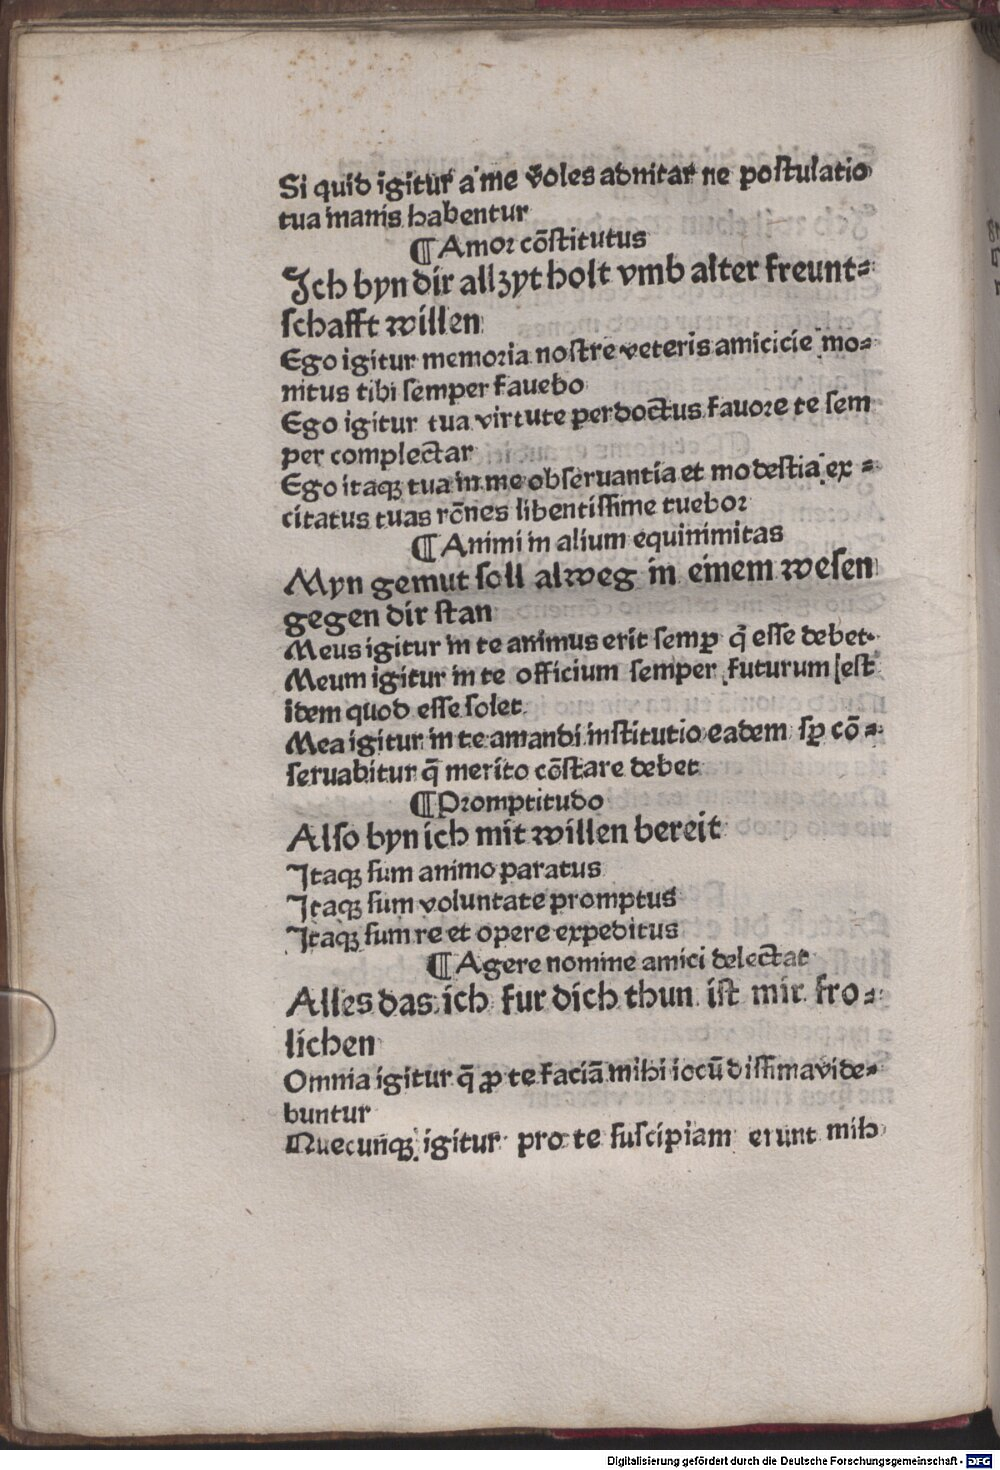 Si quid igitur a me v̄oles adnitar ne postulatio
tua inanis habentur
¶ Amor cōstitutus
Ich byn dir allzyt holt vmb alter freunt⸗
schafft willen
Ego igitur memoria nostre veteris amicicie mo⸗
nitus tibi semper favebo
Ego igitur tua virtute perdoctus favore te sem
per complectar
Ego itaqꝫ tua in me observantia et modestia ex⸗
citatus tuas rōnes libentissime tuebor
¶ Animi in alium equinimitas
Myn gemut soll alweg in einem wesen
gegen dir stan
Meus igitur in te animus erit semꝑ q̄ esse debet
Meum igitur in te officium semper futurum [est
idem quod esse solet
Mea igitur in te amandi institutio eadem sꝑ cō⸗
servabitur q̄ merito cōstare debet
¶ Promptitudo
Also byn ich mit willen bereit
Itaqꝫ sum animo paratus
Itaqꝫ sum voluntate promptus
Itaqꝫ sum re et opere expeditus
¶ Agere nomine amici delectat
Alles das ich fur dich thun ist mir fro⸗
lichen
Omnia igitur q̄ ꝓ te faciā mihi iocūdissima vide⸗
buntur
Quecunqꝫ igitur pro te suscipiam erunt mih
Digitalisierung gefördert durch die Deutsche Forschungsgemeinschaft - DFG